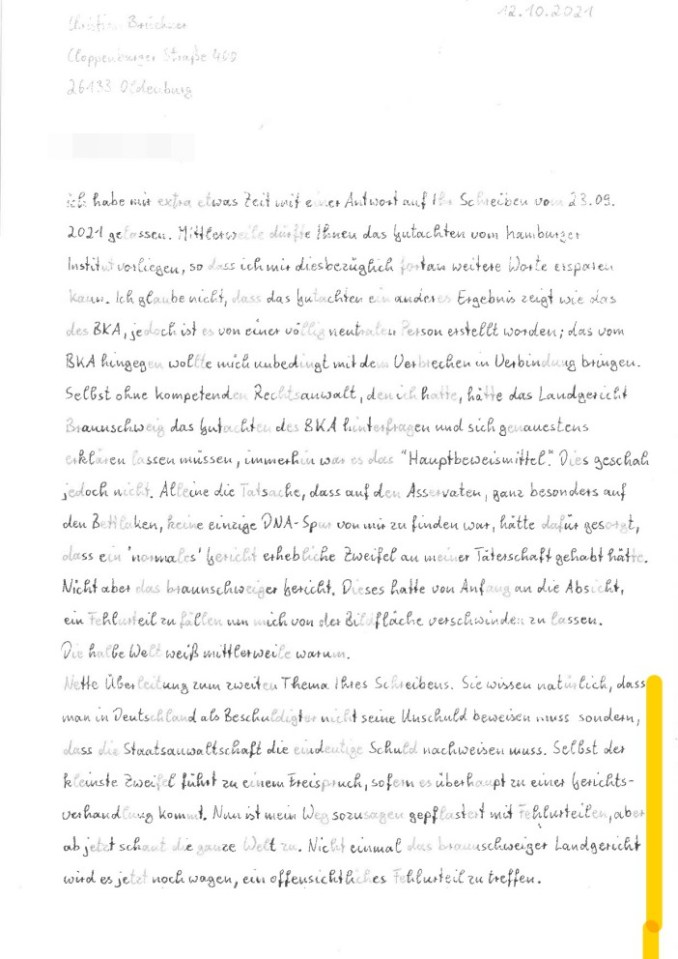 12.10.2021
Christian Brückner
Cloppenburger Straße 400
26133 Oldenburg
ich habe mir extra etwas Zeit mit einer Antwort auf Ihr Schreiben vom 23.09.
2021 gelassen. Mittlerweile dürfte Ihnen das Gutachten vom Hamburger
Institut vorliegen, so dass ich mir diesbezüglich fortan weitere Worte ersparen
kann. Ich glaube nicht, dass das Gutachten ein anderes Ergebnis zeigt wie das
des BKA, jedoch ist es von einer völlig neutralen Person erstellt worden; das vom
BKA hingegen wollte mich unbedingt mit dem Verbrechen in Verbindung bringen.
Selbst ohne kompetenden Rechtsanwalt, den ich hatte, hätte das Landgericht
Braunschweig das Gutachten des BKA hinterfragen und sich genauestens
erklären lassen müssen, immerhin war es das "Hauptbeweismittel". Dies geschah
jedoch nicht. Alleine die Tatsache, dass auf den Asservaten, ganz besonders auf
den Bettlaken, keine einzige DNA-Spur von mir zu finden war, hätte dafür gesorgt,
dass ein 'normales' Gericht erhebliche Zweifel an meiner Täterschaft gehabt hätte.
Nicht aber das braunschweiger Gericht. Dieses hatte von Anfang an die Absicht,
ein Fehlurteil zu fällen um mich von der Bildfläche verschwinden zu lassen.
Die halbe Welt weiß mittlerweile warum.
Nette Überleitung zum zweiten Thema Ihres Schreibens. Sie wissen natürlich, dass
man in Deutschland als Beschuldigter nicht seine Unschuld beweisen muss sondern,
dass die Staatsanwaltschaft die eindeutige Schuld nachweisen muss. Selbst der
kleinste Zweifel führt zu einem Freispruch, sofern es überhaupt zu einer Gerichts-
verhandlung kommt. Nun ist mein Weg sozusagen gepflastert mit Fehlurteilen, aber
ab jetzt schaut die ganze Welt zu. Nicht einmal das braunschweiger Landgericht
wird es jetzt noch wagen, ein offensichtliches Fehlurteil zu treffen.